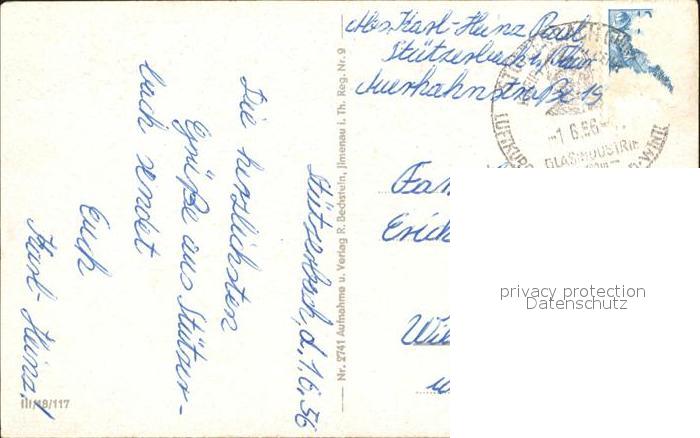 Abs. Karl-Heinz
Stützerbach i. Thür
Auerhahnstraße 19
-1.6.56
GLASINDUSTRIE
LUFTKURO
Stützerbach, d. 1.6.56
Die herzlichsten
Grüße aus Stützer-
bach sendet
Euch
Karl-Heinz!
Nr. 2741 Aufnahme u. Verlag R. Bechstein, Jlmenau i. Th. Reg. Nr. 9
Fam
Erich
III/18/117
privacy protection
Datenschutz